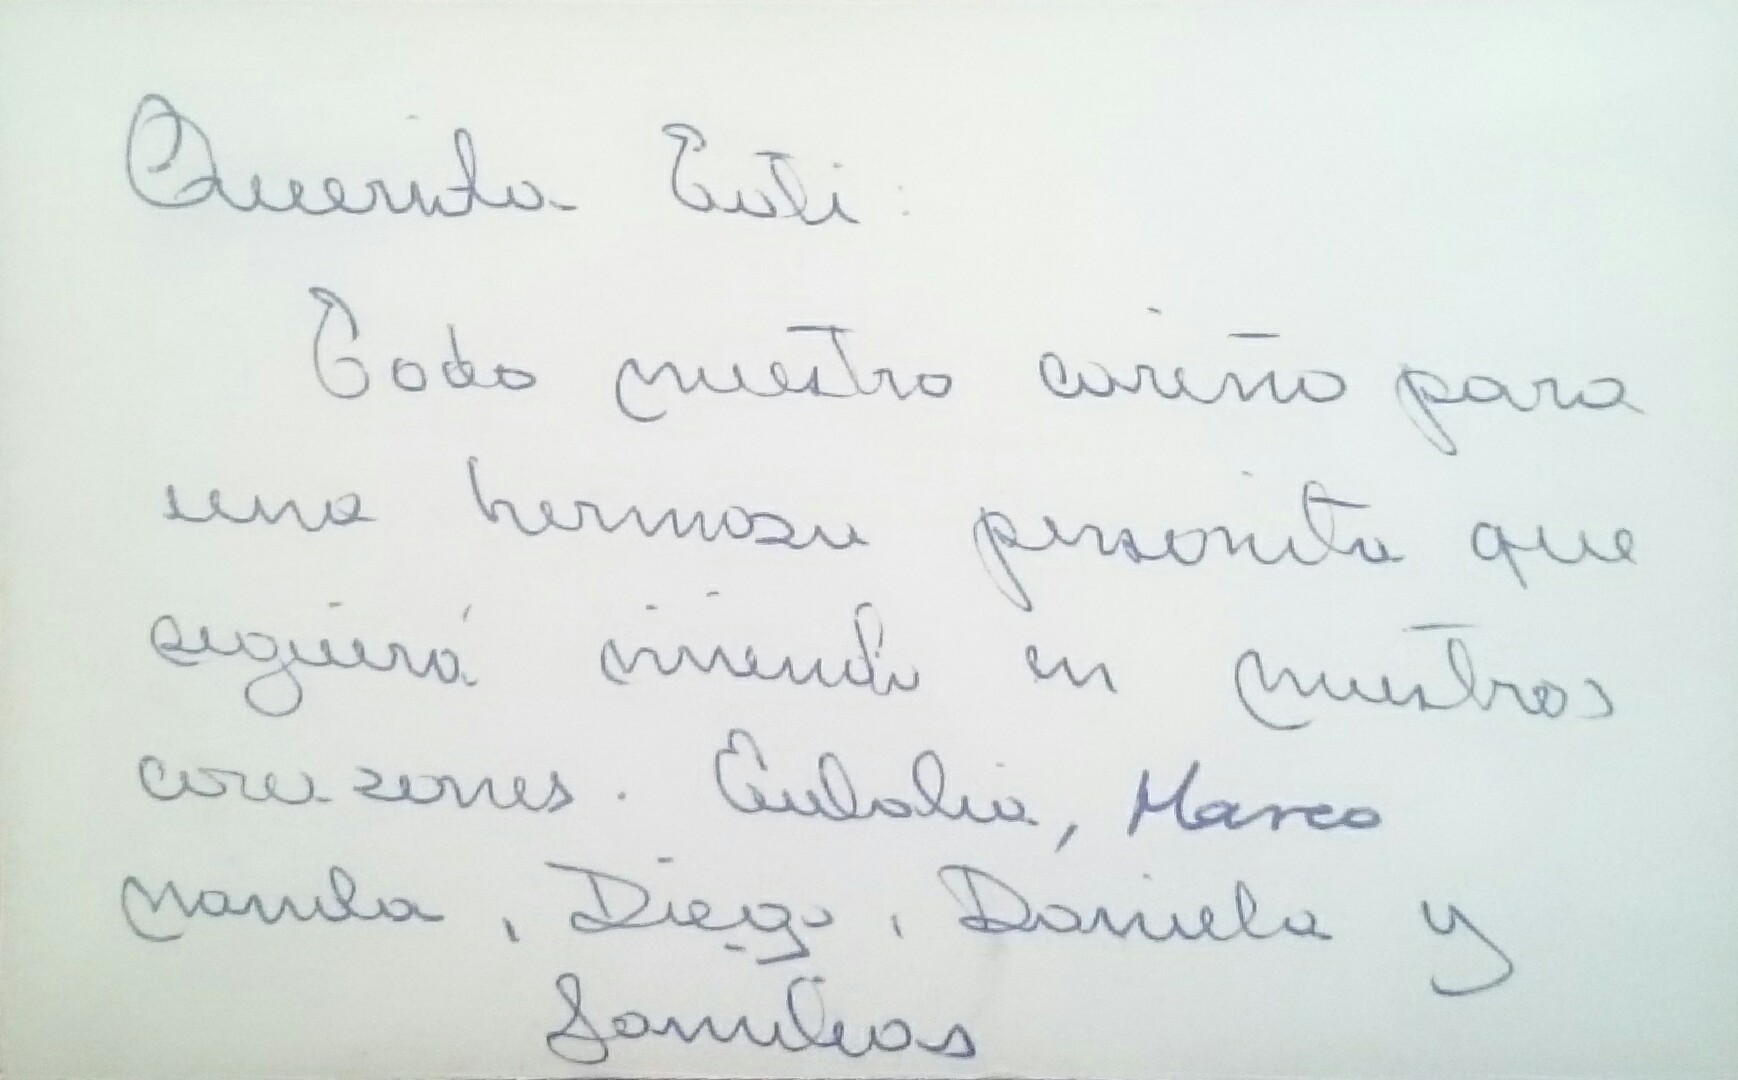 Querida Euti:
Todo nuestro cariño para
una hermosa personita que
seguirá viviendo en nuestros
corazones. Eulalia, Marco
Diego, Daniela y
familias